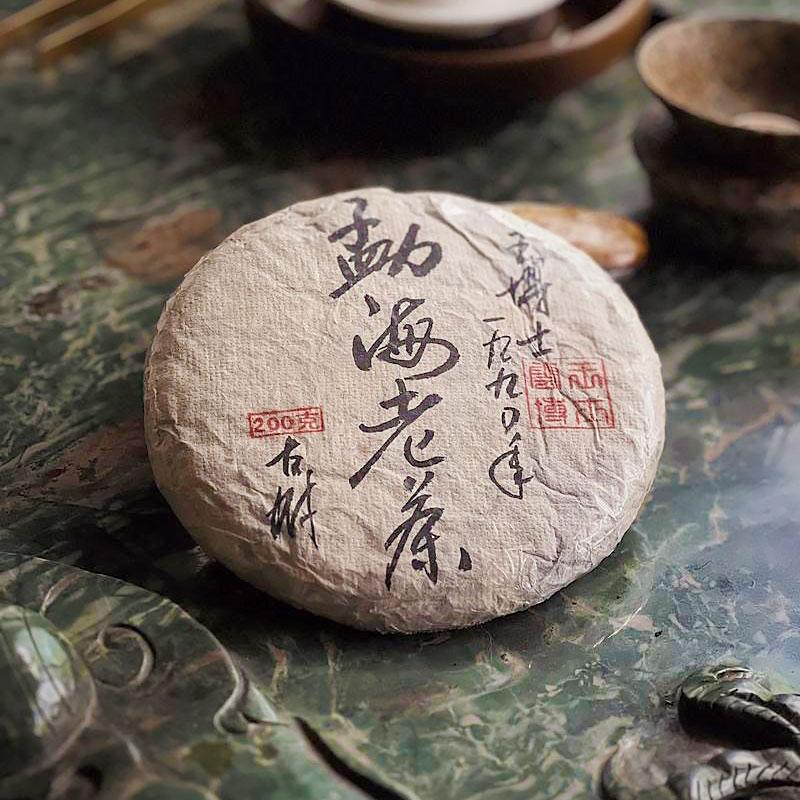 博士
一九九〇年
勐海老茶
200克
古树